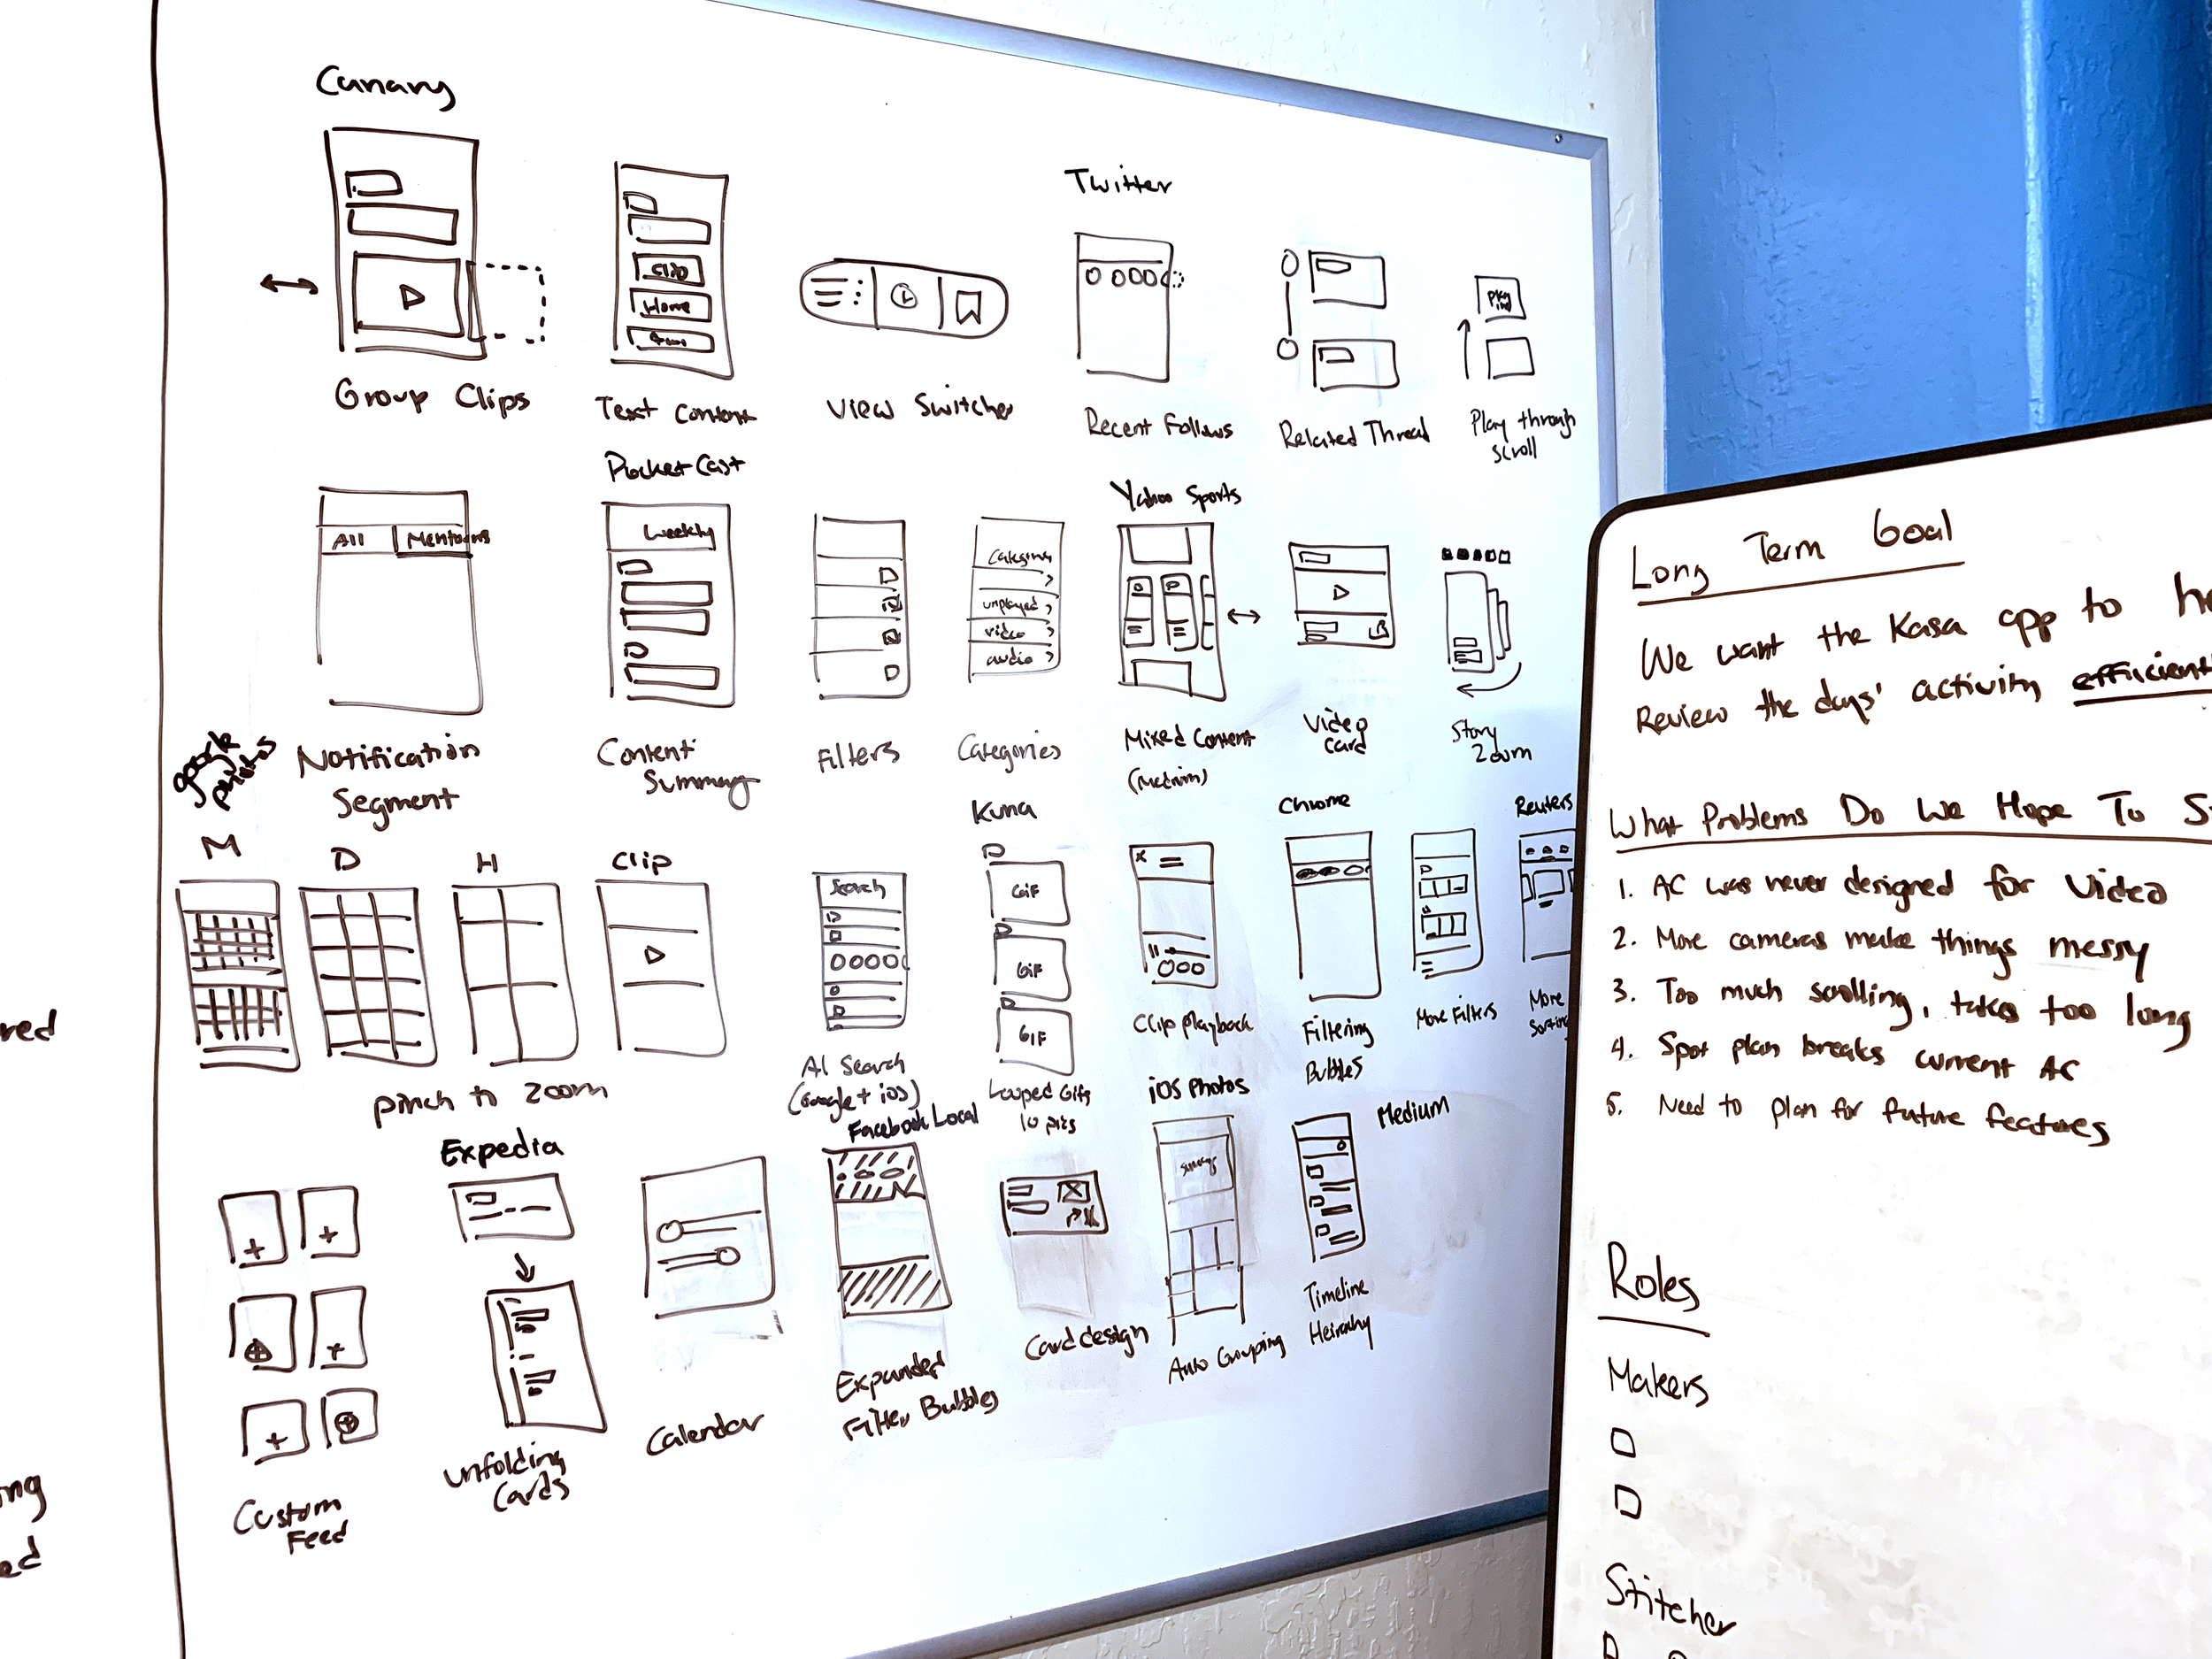 Canary
Clip
Home
Group Clips
Text Content
View Switcher
Twitter
Recent Follows
Related Thread
Play through
scroll
All
Mentions
Notification
Segment
Pocket Cast
Weekly
Content
Summary
Filters
Categories
unplayed
video
audio
Categories
Yahoo Sports
Mixed Content
(Medium)
Video
Card
Story
Zoom
google
photos
M
D
H
Clip
pinch to zoom
Search
AI Search
(Google + iOS)
Kuna
GIF
GIF
GIF
Looped Gifs
10 pics
Clip playback
Chrome
Filtering
Bubbles
More Filters
Reuters
More
Sorting
Custom
Feed
Expedia
Unfolding
Cards
Calendar
Facebook Local
Expanded
Filter Bubbles
Card design
iOS Photos
Summary
Auto Grouping
Medium
Timeline
Heirarhy
red
ng
ed
Long Term Goal
We want the Kasa app to he
Review the days' activity efficient
What Problems Do We Hope To S
1. AC was never designed for Video
2. More cameras make things messy
3. Too much scrolling, takes too long
4. Spot plan breaks current AC
5. Need to plan for future features
Roles
Makers
Stitcher